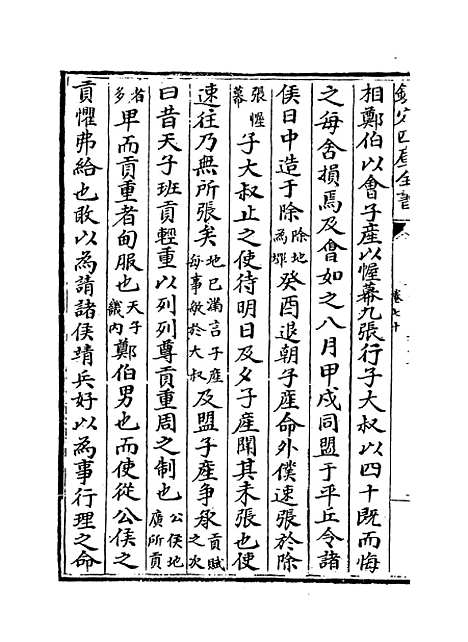 欽定四庫全書
卷七十
相鄭伯以會子產以幄幕九張行子大叔以四十既而悔
之每舍損焉及會如之八月甲戌同盟于平丘令諸
侯日中造于除除地為壇癸酉退朝子產命外僕速張於除
張幄幕子大叔止之使待明日及夕子產聞其未張也使
速往乃無所張矣地已滿言子產每事敏於大叔及盟子產爭承貢賦之次
曰昔天子班貢輕重以列列尊貢重周之制也公侯地廣所貢
者多卑而貢重者甸服也天子畿內鄭伯男也而使從公侯之
貢懼弗給也敢以為請諸侯靖兵好以為事行理之命